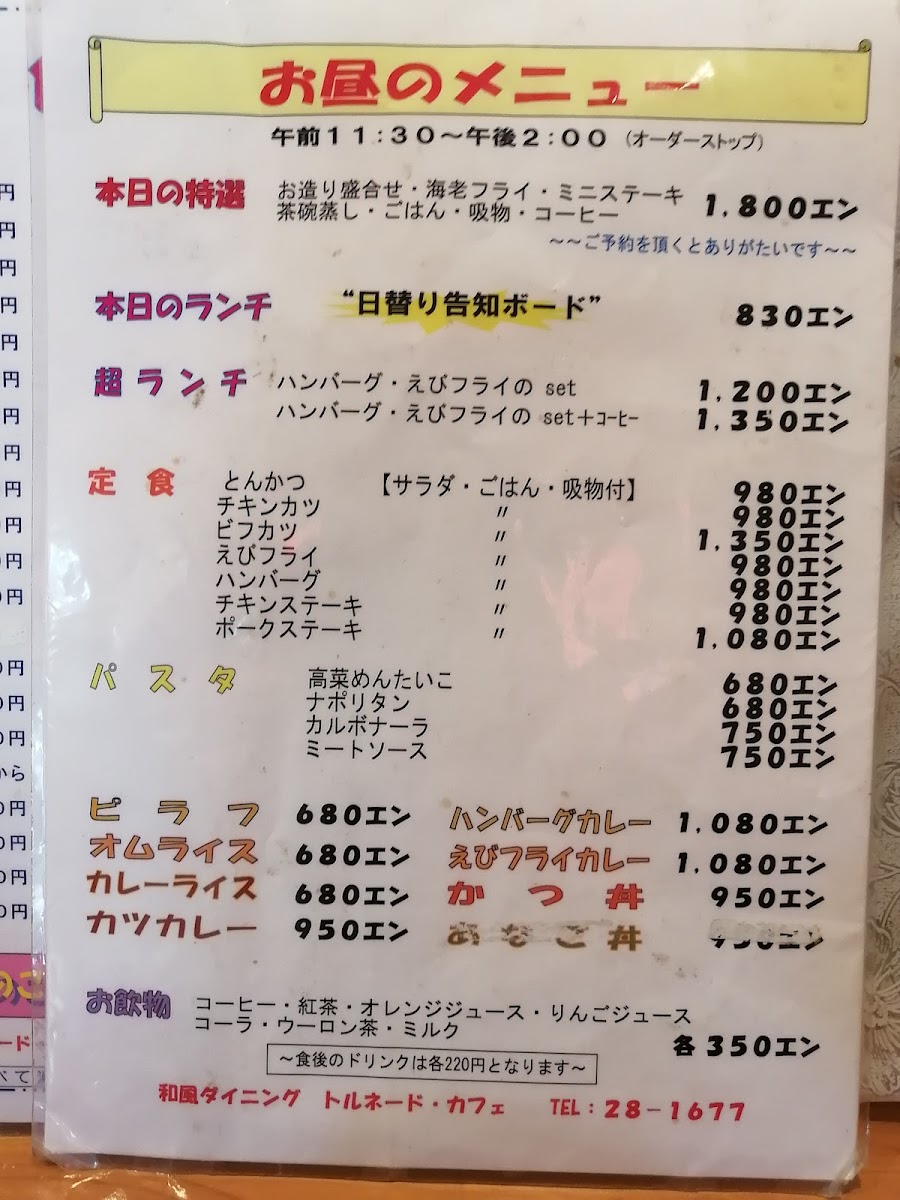 お昼のメニュー
午前11:30～午後2:00 (オーダーストップ)
本日の特選 お造り盛合せ・海老フライ・ミニステーキ
茶碗蒸し・ごはん・吸物・コーヒー 1,800エン
～～ご予約を頂くとありがたいです～～
本日のランチ “日替り告知ボード” 830エン
超ランチ ハンバーグ・えびフライの set 1,200エン
ハンバーグ・えびフライの set＋コーヒー 1,350エン
定食 とんかつ 【サラダ・ごはん・吸物付】 980エン
チキンカツ 〃 980エン
ビフカツ 〃 1,350エン
えびフライ 〃 980エン
ハンバーグ 〃 980エン
チキンステーキ 〃 980エン
ポークステーキ 〃 1,080エン
パスタ 高菜めんたいこ 680エン
ナポリタン 680エン
カルボナーラ 750エン
ミートソース 750エン
ピラフ 680エン ハンバーグカレー 1,080エン
オムライス 680エン えびフライカレー 1,080エン
カレーライス 680エン かつ丼 950エン
カツカレー 950エン あなご丼
お飲物 コーヒー・紅茶・オレンジジュース・りんごジュース
コーラ・ウーロン茶・ミルク 各350エン
～食後のドリンクは各220円となります～
和風ダイニング トルネード・カフェ TEL：28－1677